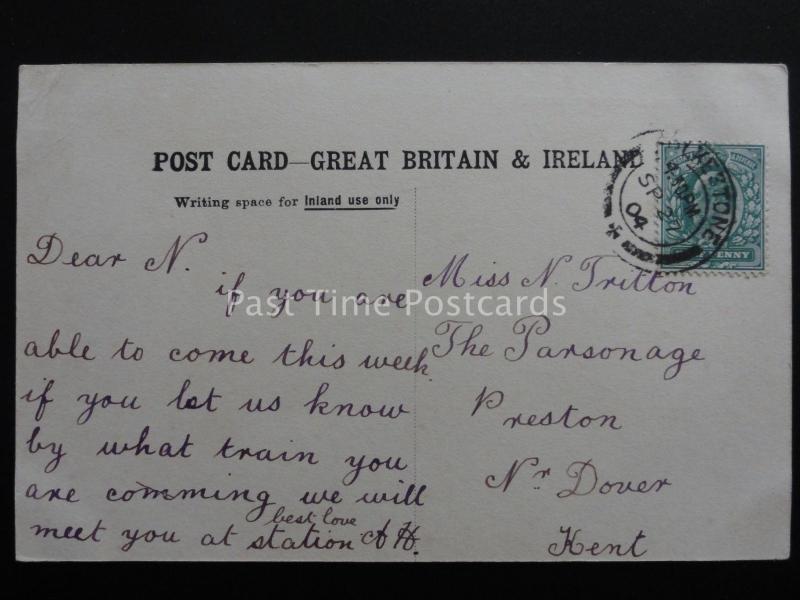 POST CARD—GREAT BRITAIN & IRELAND
Writing space for Inland use only
Dear N.
if you are
able to come this week
if you let us know
by what train you
are comming we will
meet you at station
best love
A H.
Miss N. Tritton
The Parsonage
Preston
Nr Dover
Kent
FOLKESTONE
PM
SP 2
04
PENNY
Past Time Postcards